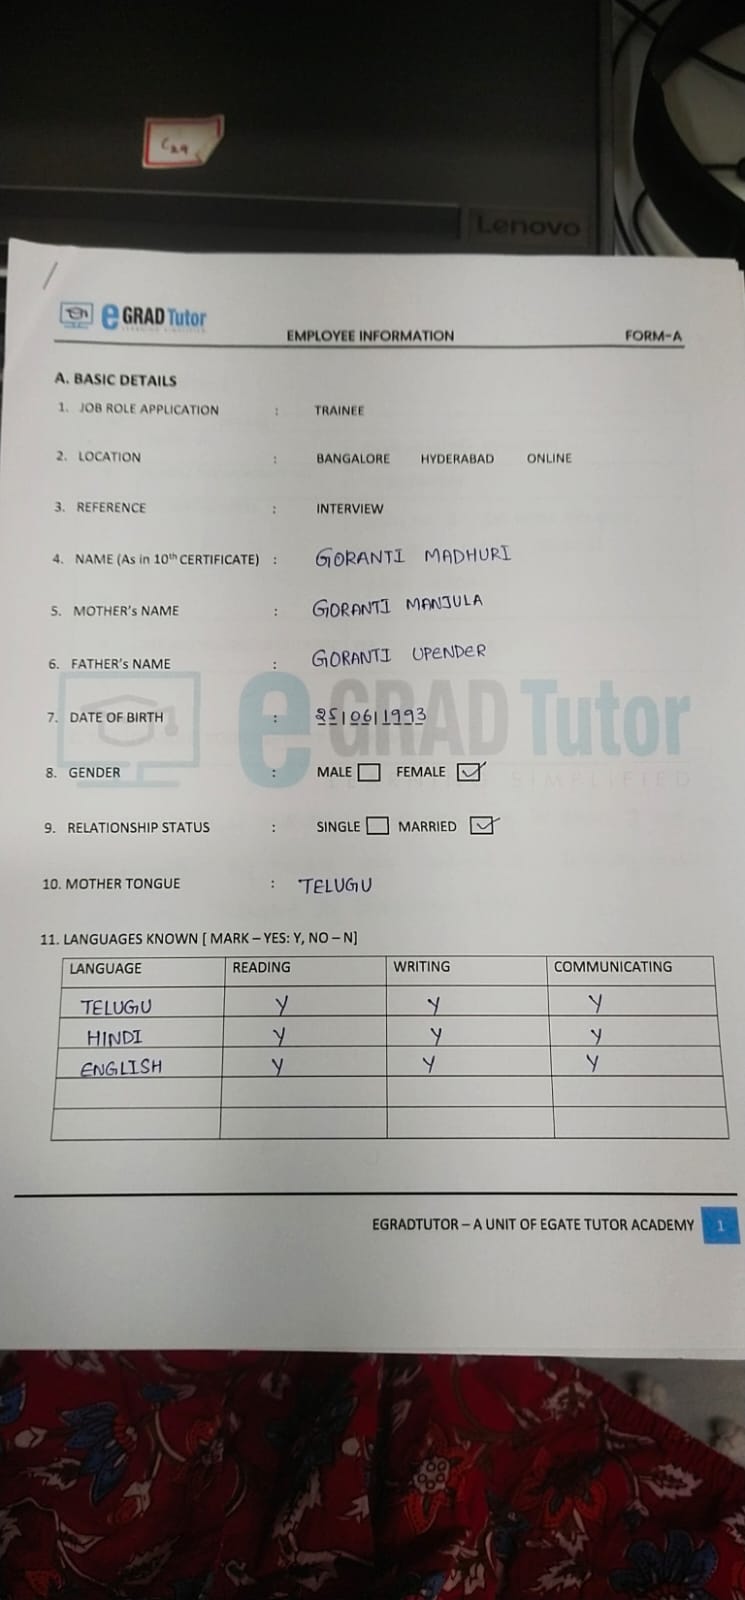 C29
Lenovo
e GRAD Tutor
EMPLOYEE INFORMATION FORM-A
A. BASIC DETAILS
1. JOB ROLE APPLICATION : TRAINEE
2. LOCATION : BANGALORE HYDERABAD ONLINE
3. REFERENCE : INTERVIEW
4. NAME (As in 10th CERTIFICATE) : GORANTI MADHURI
5. MOTHER's NAME : GORANTI MANJULA
6. FATHER's NAME : GORANTI UPENDER
e GRAD Tutor
7. DATE OF BIRTH : 25/06/1993
SIMPLIFIED
8. GENDER : MALE FEMALE
9. RELATIONSHIP STATUS : SINGLE MARRIED
10. MOTHER TONGUE : TELUGU
11. LANGUAGES KNOWN [ MARK – YES: Y, NO – N]
LANGUAGE READING WRITING COMMUNICATING
TELUGU Y Y Y
HINDI Y Y Y
ENGLISH Y Y Y
EGRADTUTOR – A UNIT OF EGATE TUTOR ACADEMY 1